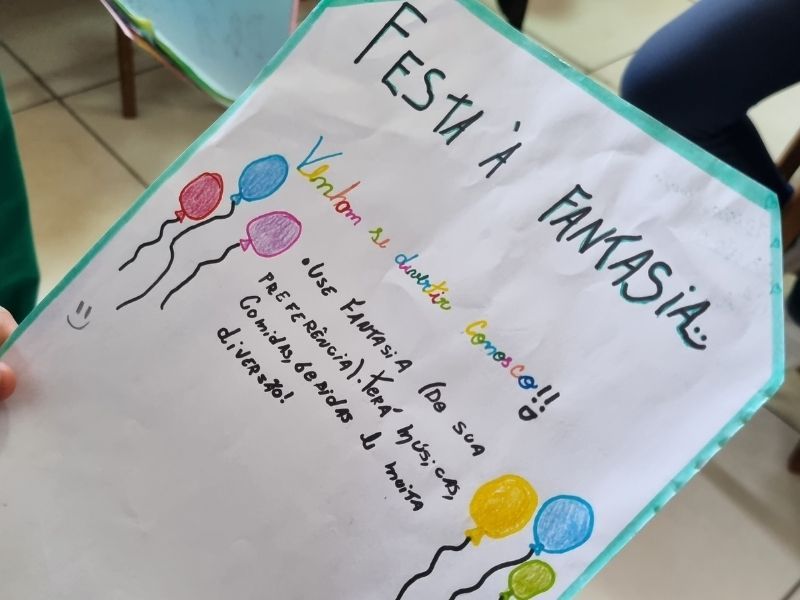 FESTA À FANTASIA
Venham se divertir Conosco!!
• USE FANTASIA (DE SUA
PREFERÊNCIA). TERÁ MÚSICAS,
COMIDAS, BEBIDAS E MUITA
DIVERSÃO!